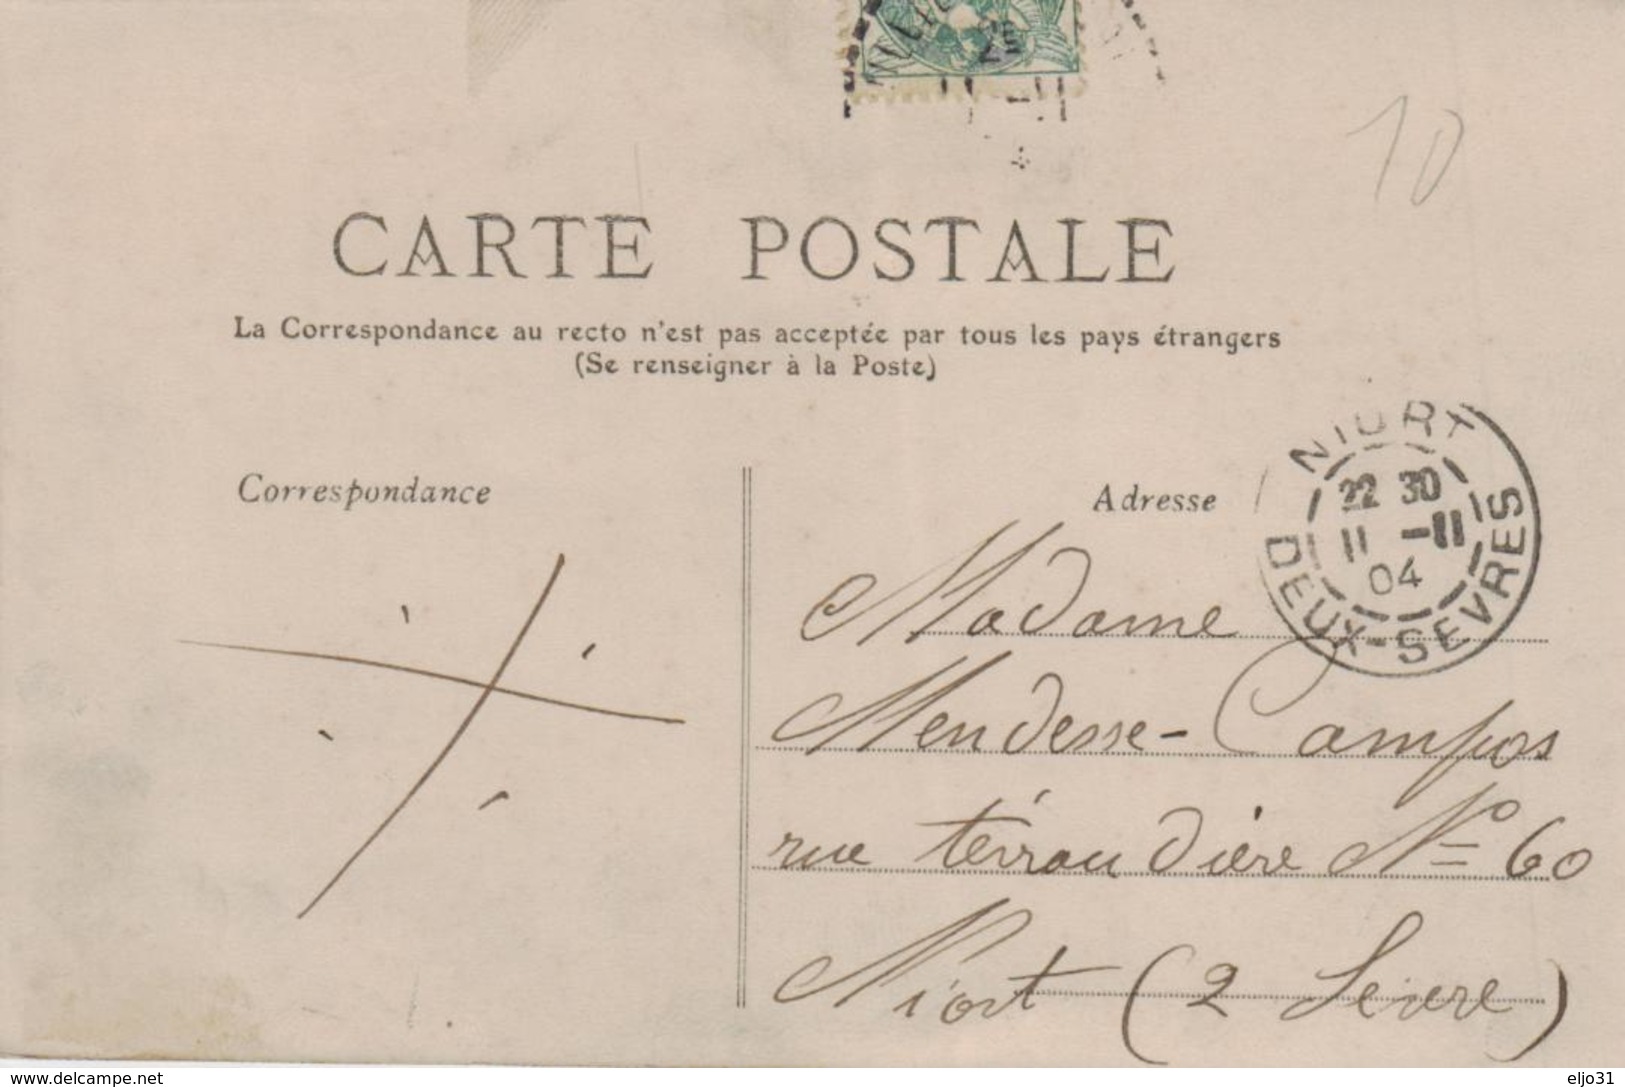 10
CARTE POSTALE
La Correspondance au recto n'est pas acceptée par tous les pays étrangers
(Se renseigner à la Poste)
Correspondance
Adresse
NIORT
22 30
11 -11
04
DEUX-SEVRES
Madame
Mendesse-Campos
rue térraudière No 60
Niort (2 Sèvre)
www.delcampe.net
eljo31